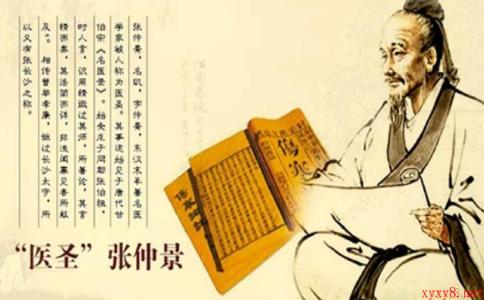 张仲景，名机，字仲景，东汉末年著名医
学家被人称为医圣。其事迹始见于唐代甘
伯宗《名医录》。始受术于同郡张伯祖，
时人言，识用精微过其师，所著论，其言
精而奥，其法简而详，非浅闻寡见者所能
及。相传曾举孝廉，做过长沙太守，所
以又有张长沙之称。
“医圣”张仲景
xyxy8.net.ru